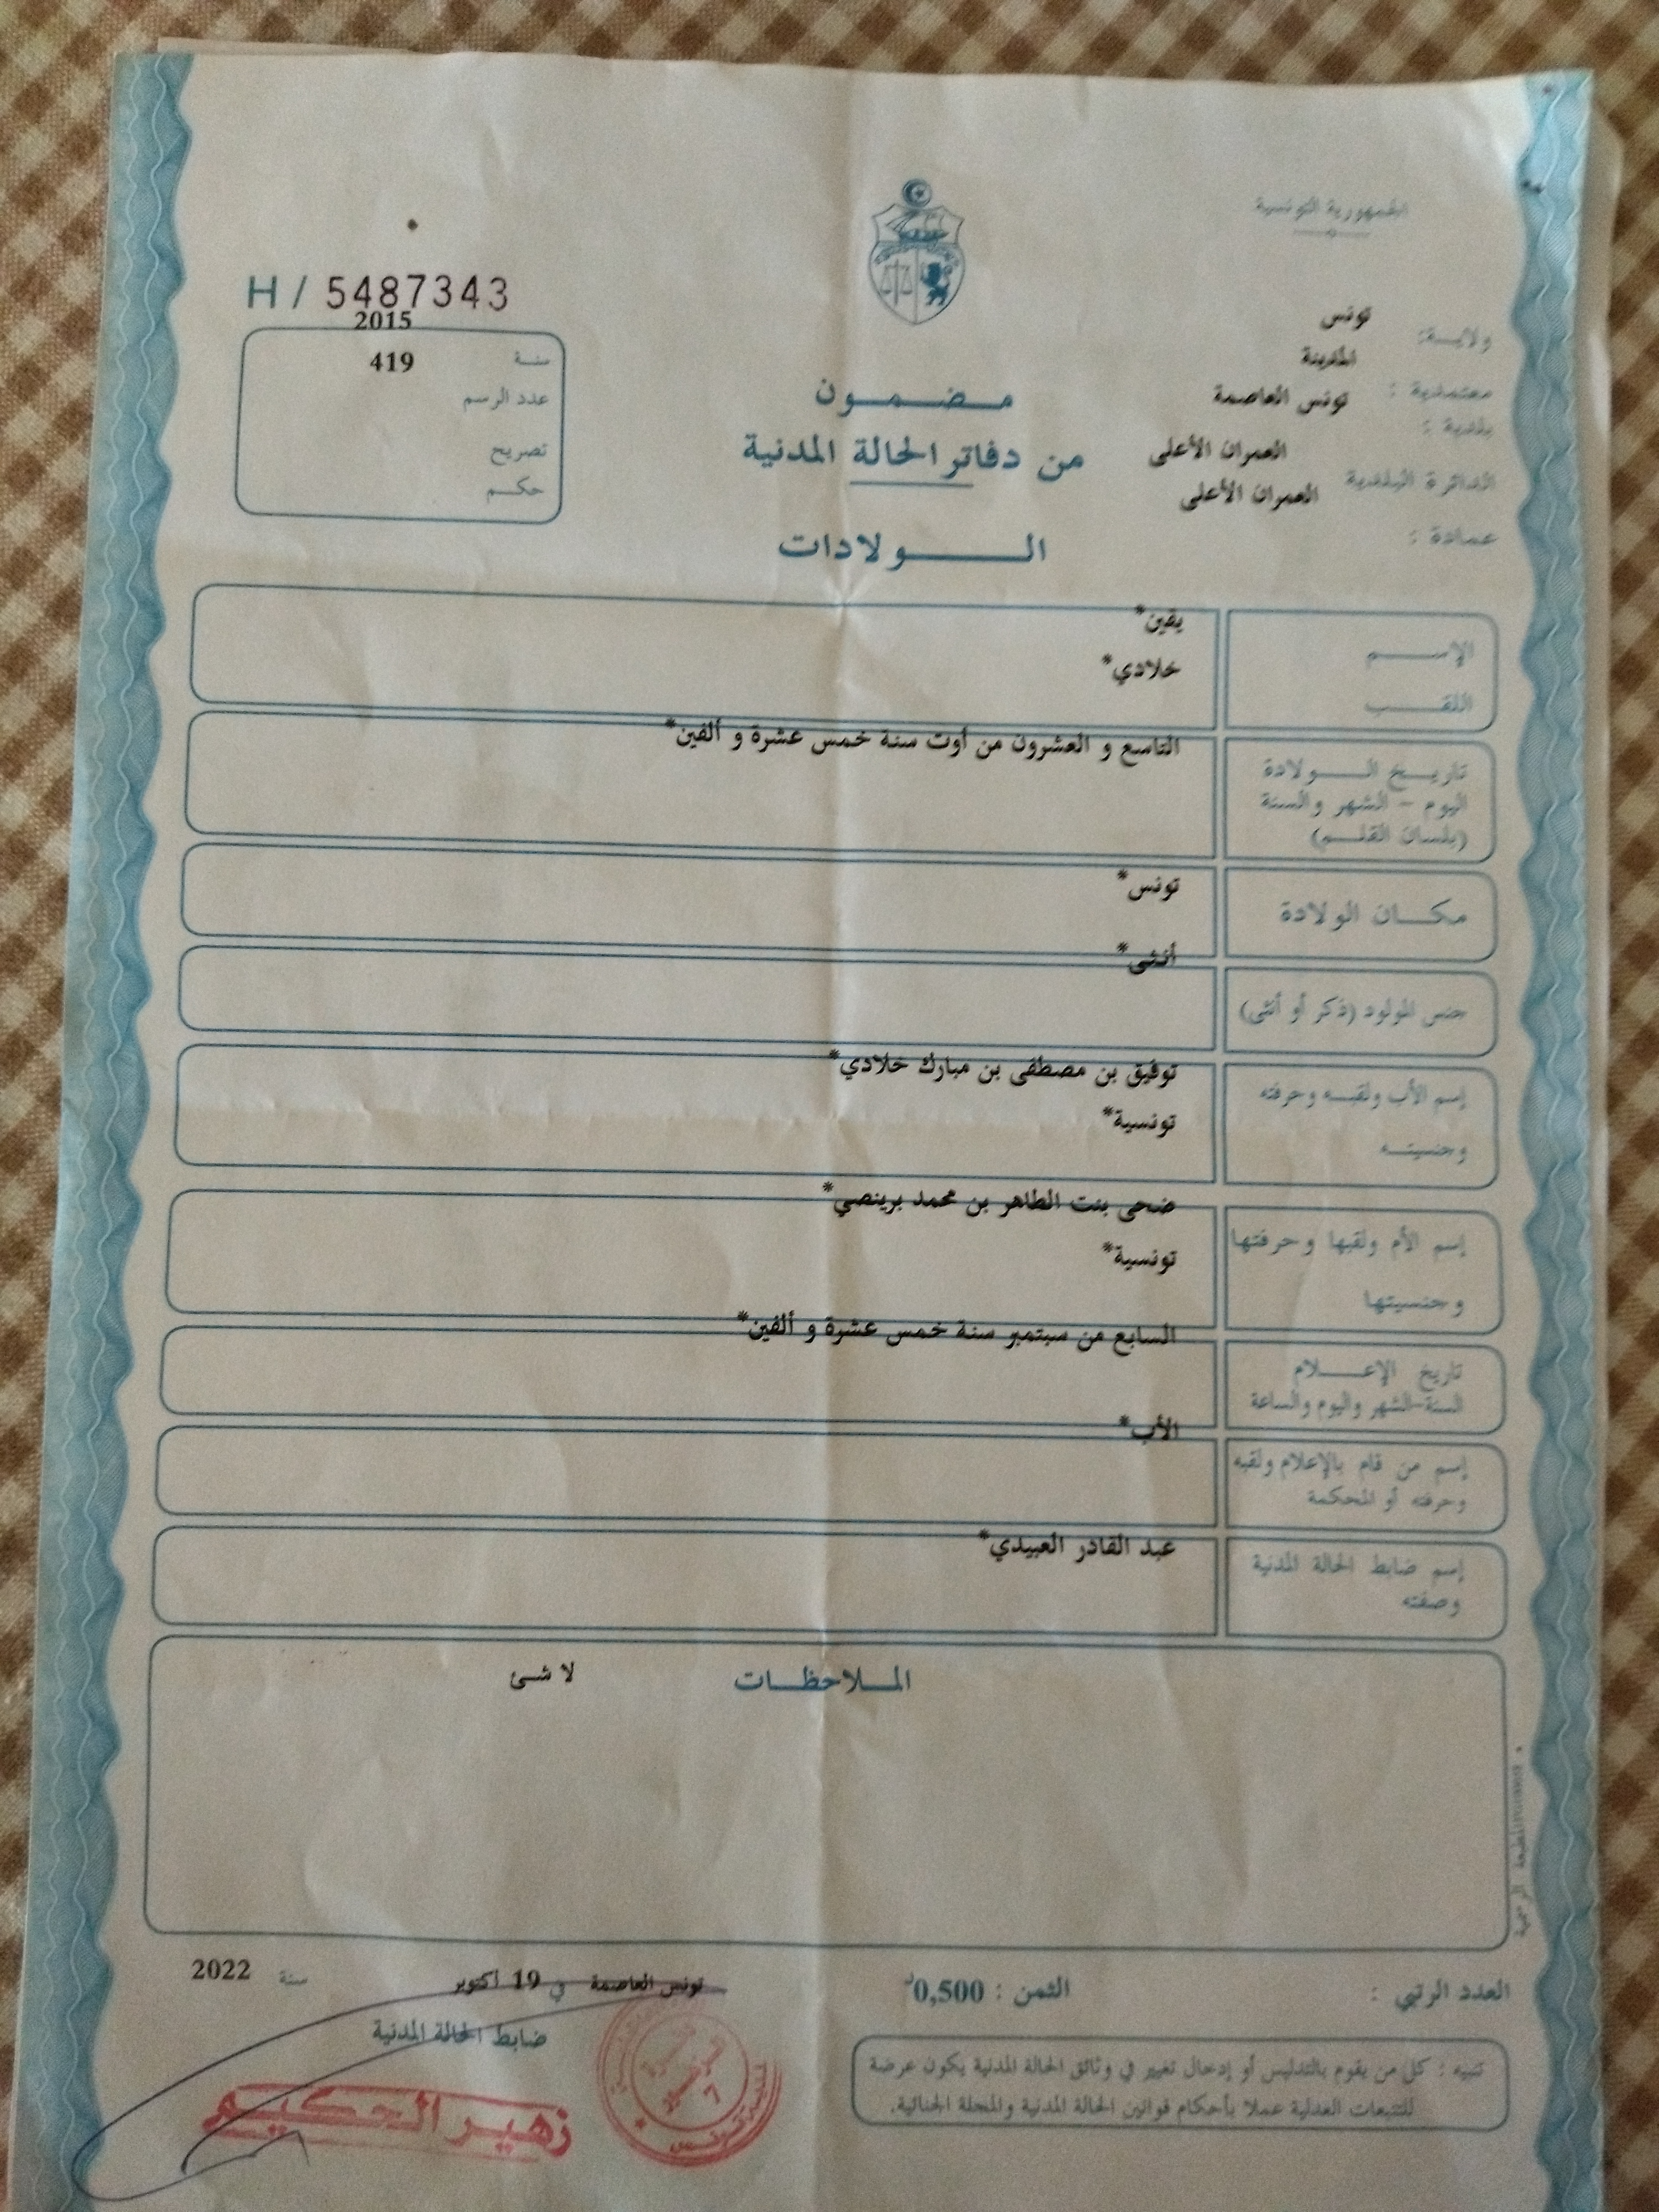 الجمهورية التونسية
H / 5487343
2015
سنة
419
عدد الرسم
تصريح
حكم
ولاية: تونس
معتمدية : المدينة
بلدية : تونس العاصمة
الدائرة البلدية العمران الأعلى
عمادة : العمران الأعلى
مضمون
من دفاتر الحالة المدنية
الولادات
الإسم يقين*
اللقب خلادي*
تاريخ الولادة
اليوم - الشهر والسنة
(بلسان القلم)
التاسع و العشرون من أوت سنة خمس عشرة و ألفين*
مكان الولادة تونس*
جنس المولود (ذكر أو أنثى) أنثى*
إسم الأب ولقبه وحرفته
وجنسيته
توفيق بن مصطفى بن مبارك خلادي*
تونسية*
إسم الأم ولقبها وحرفتها
وجنسيتها
ضحى بنت الطاهر بن محمد برينصي*
تونسية*
تاريخ الإعلام
السنة-الشهر واليوم والساعة
السابع من سبتمبر سنة خمس عشرة و ألفين*
إسم من قام بالإعلام ولقبه
وحرفته أو المحكمة
الأب*
إسم ضابط الحالة المدنية
وصفته
عبد القادر العبيدي*
الملاحظات لا شئ
المطبعة الرسمية
العدد الرتبي :
الثمن : 0,500د
تونس العاصمة في 19 أكتوبر سنة 2022
ضابط الحالة المدنية
زهير الحكيم
تنبيه : كل من يقوم بالتدليس أو إدخال تغيير في وثائق الحالة المدنية يكون عرضة
للتتبعات العدلية عملا بأحكام قوانين الحالة المدنية والمجلة الجنائية.